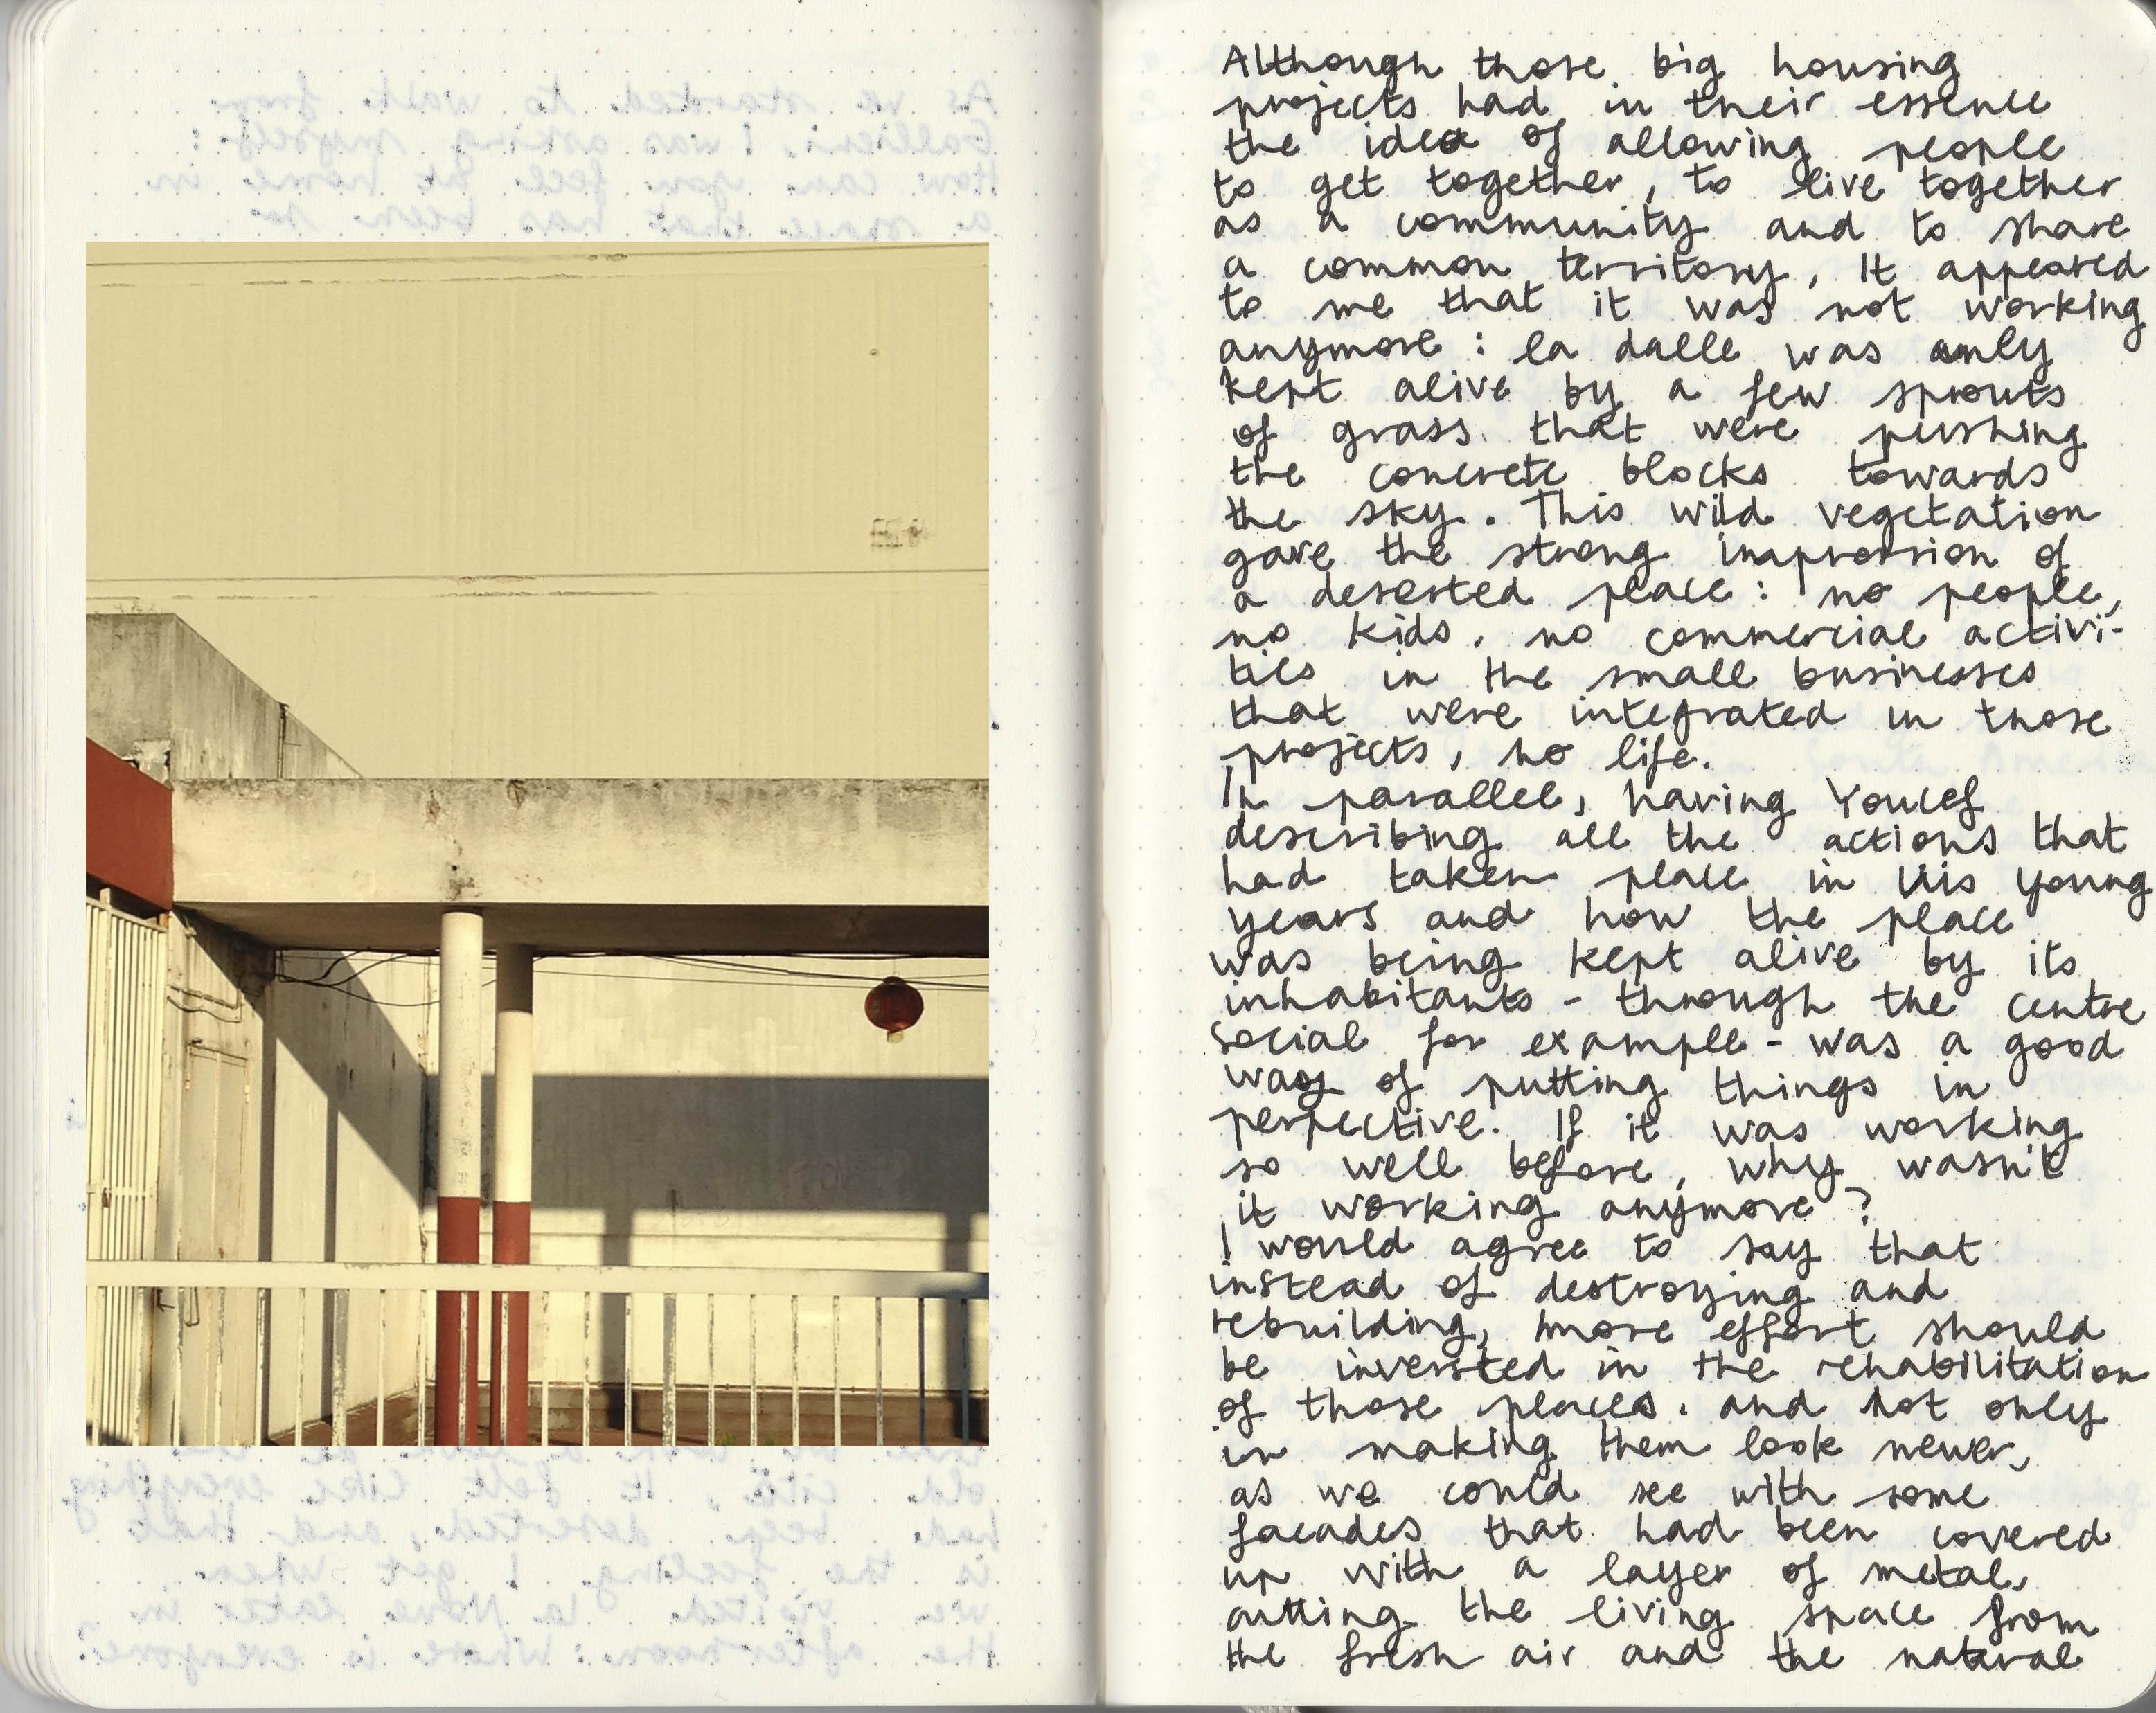 Although those big housing
projects had in their essence
the idea of allowing people
to get together, to live together
as a community and to share
a common territory, It appeared
to me that it was not working
anymore : la dalle was only
kept alive by a few sprouts
of grass that were pushing
the concrete blocks towards
the sky. This wild vegetation
gave the strong impression of
a deserted place : no people,
no kids, no commercial activi-
ties in the small businesses
that were integrated in those
projects, no life.
In parallel, having Youcef
describing all the actions that
had taken place in his young
years and how the place
was being kept alive by its
inhabitants - through the centre
social for example - was a good
way of putting things in
perpective. If it was working
so well before, why wasn't
it working anymore ?
I would agree to say that
instead of destroying and
rebuilding, more effort should
be inversted in the rehabilitation
of those places. and not only
in making them look newer,
as we could see with some
facades that had been covered
up with a layer of metal,
cutting the living space from
the fresh air and the natural